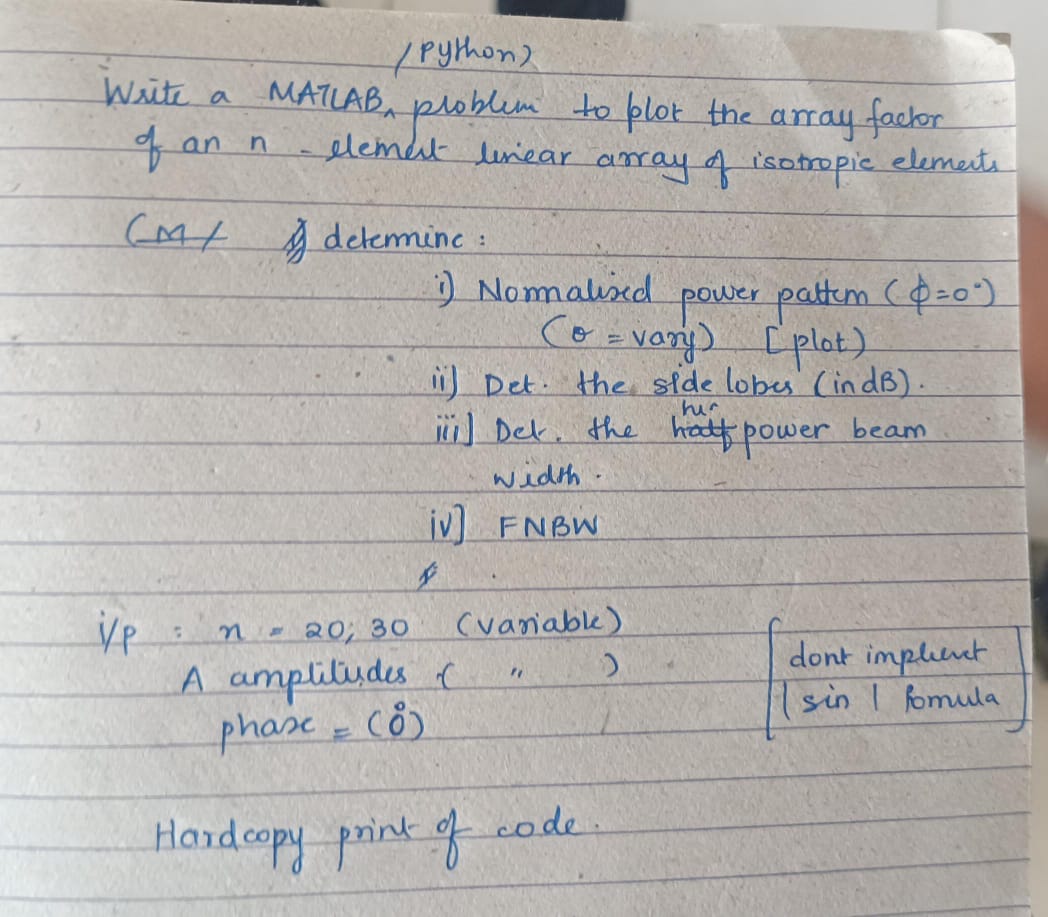 /Python)
Write a MATLAB^ problem to plot the array factor
of an n - element linear array of isotropic elements
determine :
i) Normalised power pattern (ϕ=0°)
(θ = vary) [plot)
ii] Det. the side lobes (in dB).
iii] Det. the power beam
width.
iv] FNBW
i/p : n = 20, 30 (variable)
A amplitudes ( " )
phase = (0°)
dont implement
| sin | formula
Hardcopy print of code.